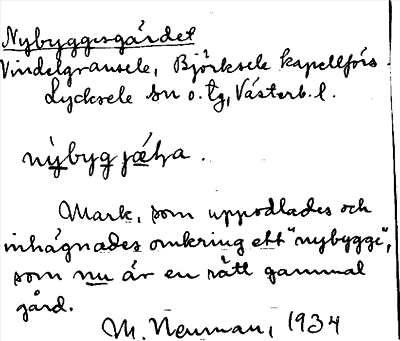 Nybyggesgärdet
Vindelgransele, Björksele kapellförs.
Lycksele sn o. tg, Västerb. l.
nybygjæḷa.
Mark, som uppodlades och
inhägnades omkring ett "nybygge",
som nu är en rätt gammal
gård.
M. Neuman, 1934